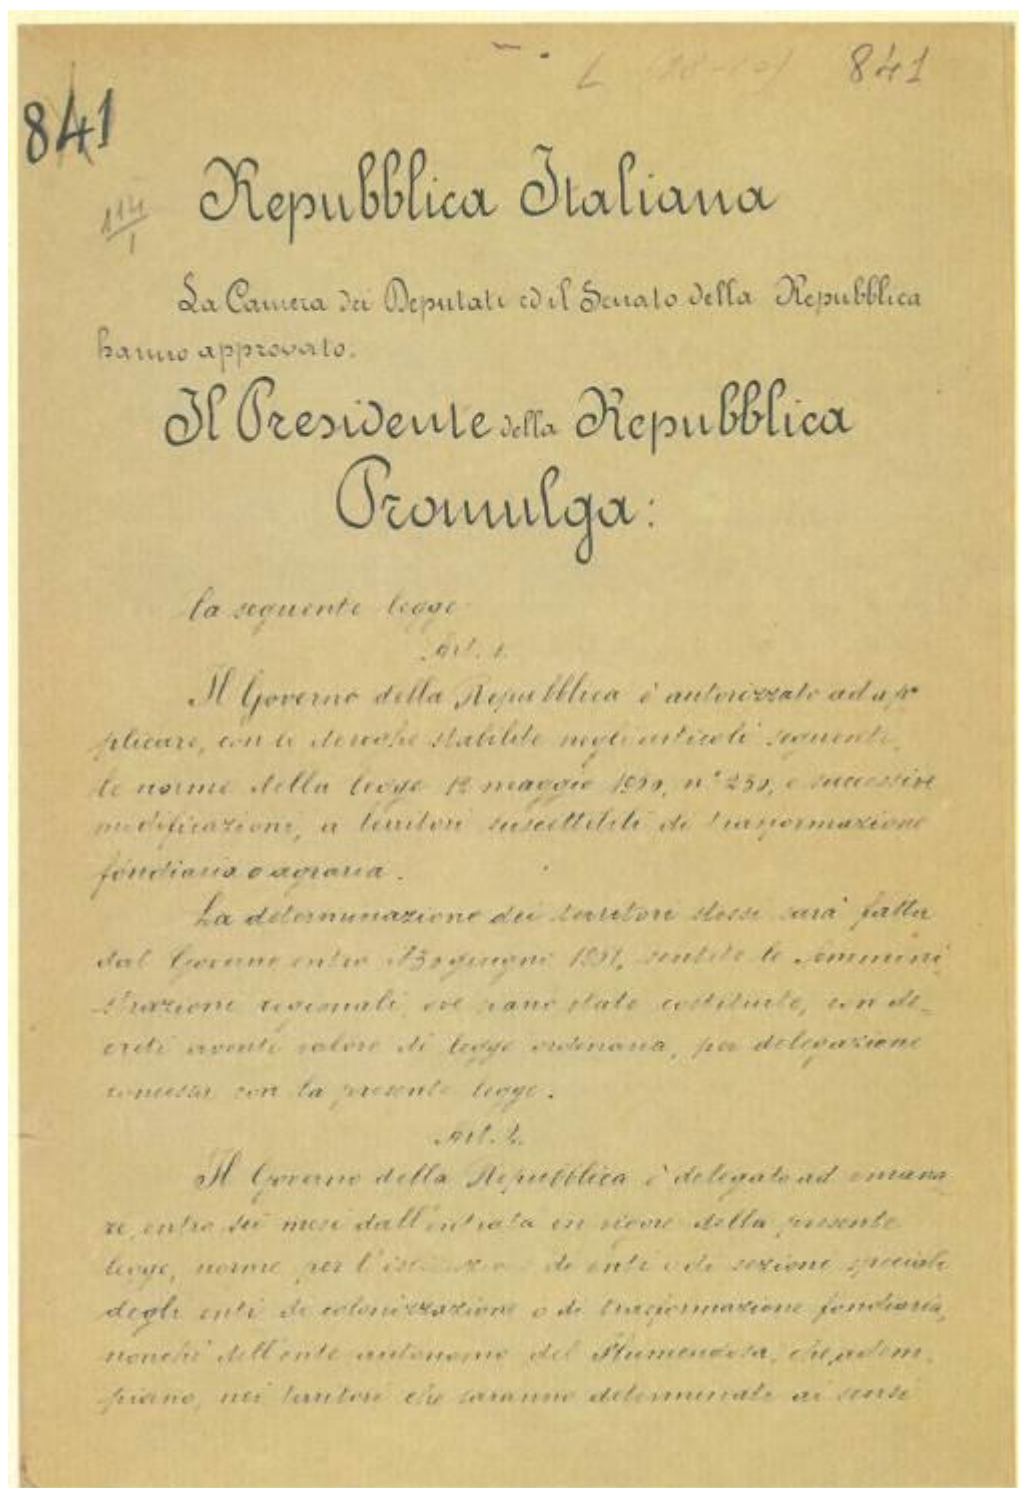 L (18-10) 841
841
114
1
Repubblica Italiana
La Camera dei Deputati ed il Senato della Repubblica
hanno approvato.
Il Presidente della Repubblica
Promulga:
la seguente legge
Art. 1.
Il Governo della Repubblica è autorizzato ad ap
plicare, con le deroghe stabilite negli articoli seguenti,
le norme della legge 12 maggio 1950, n° 230, e successive
modificazioni, a territori suscettibili di trasformazione
fondiaria o agraria.
La determinazione dei territori stessi sarà fatta
dal Governo entro il 30 giugno 1951, sentite le Ammini
strazione regionali, ove siano state costituite, con de-
creti aventi valore di legge ordinaria, per delegazione
concessa con la presente legge.
Art. 2.
Il Governo della Repubblica è delegato ad emana
re, entro sei mesi dall'entrata in vigore della presente
legge, norme per l' di enti o di sezione speciale
degli enti di colonizzazione o di trasformazione fondiaria,
nonchè dell'ente autonomo del Flumendosa, che adem.
piano, nei territori che saranno determinati ai sensi